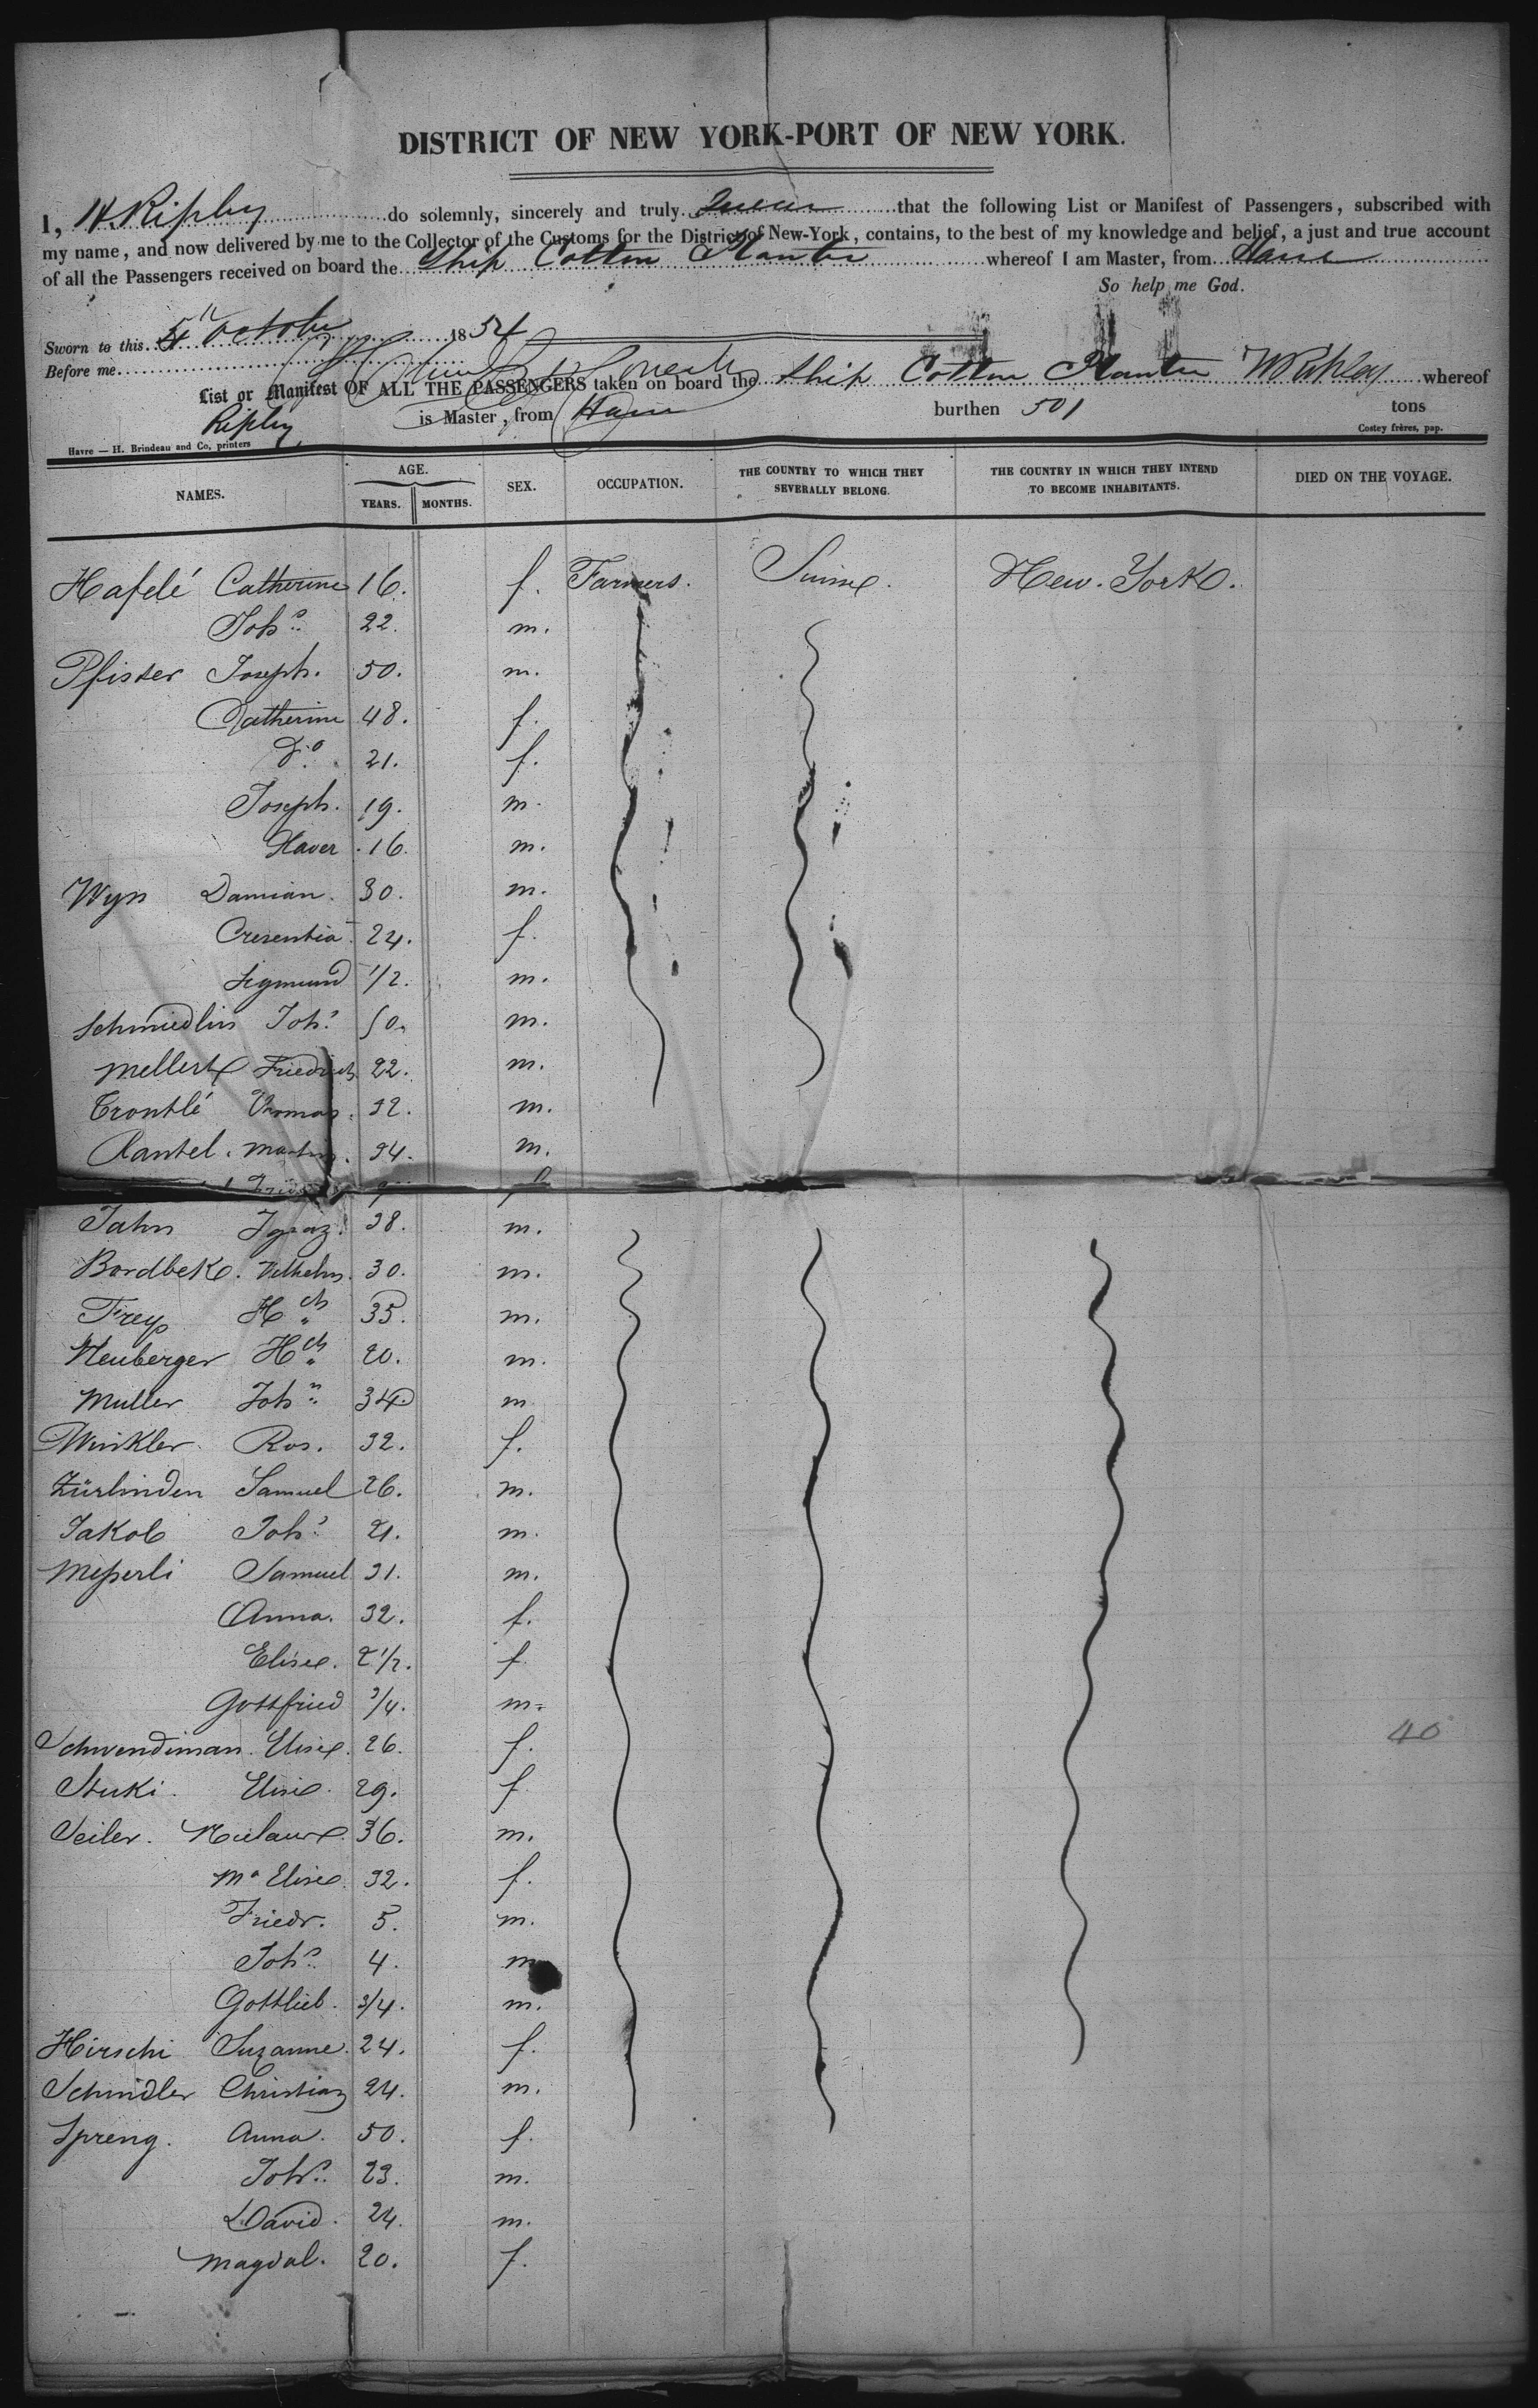 DISTRICT OF NEW YORK-PORT OF NEW YORK.
I, W Ripley do solemnly, sincerely and truly swear that the following List or Manifest of Passengers, subscribed with
my name, and now delivered by me to the Collector of the Customs for the District of New-York, contains, to the best of my knowledge and belief, a just and true account
of all the Passengers received on board the Ship Cotton Planter whereof I am Master, from Havre
So help me God.
Sworn to this 5th October 1854
Before me
List or Manifest OF ALL THE PASSENGERS taken on board the Ship Cotton Planter W Ripley whereof
Ripley is Master, from Havre burthen 501 tons
Havre — H. Brindeau and Co, printers
Costey frères, pap.
NAMES. AGE. SEX. OCCUPATION. THE COUNTRY TO WHICH THEY SEVERALLY BELONG. THE COUNTRY IN WHICH THEY INTEND TO BECOME INHABITANTS. DIED ON THE VOYAGE.
YEARS. MONTHS.
Hafelé Catherine 16. f. Farmers. Suisse. New. York.
Johs 22. m.
Pfister Joseph. 50. m.
Catherine 48. f.
do. 21. f.
Joseph. 19. m.
Xaver 16. m.
Wyss Damian. 30. m.
Cresentia 24. f.
Sigmund 1/2. m.
Schmiedlin Johs 50. m.
Mellert Friedrich 22. m.
Trontlé Thomas. 32. m.
Rantel. Martin. 34. m.
Jahn Ignaz. 38. m.
Bordbek. Wilhelm. 30. m.
Frey Hch 35. m.
Neuberger Hch 20. m.
Muller John 34 m
Winkler. Ros. 32. f.
Zürlinden Samuel 26. m.
Jakob Johs 21. m.
Messerli Samuel 31. m.
Anna. 32. f.
Elise. 2 1/2. f.
Gottfried 3/4. m.
Schwendiman. Elise. 26. f.
Stuki. Elise. 29. f.
Seiler. 36. m.
Ma Elise. 32. f.
Friedr. 5. m.
Johs 4. m
Gottlieb. 3/4. m.
Hirschi Suzanne. 24. f.
Schindler Christian 24. m.
Spreng. Anna. 50. f.
Johs. 23. m.
David. 24. m.
Magdal. 20. f.
40